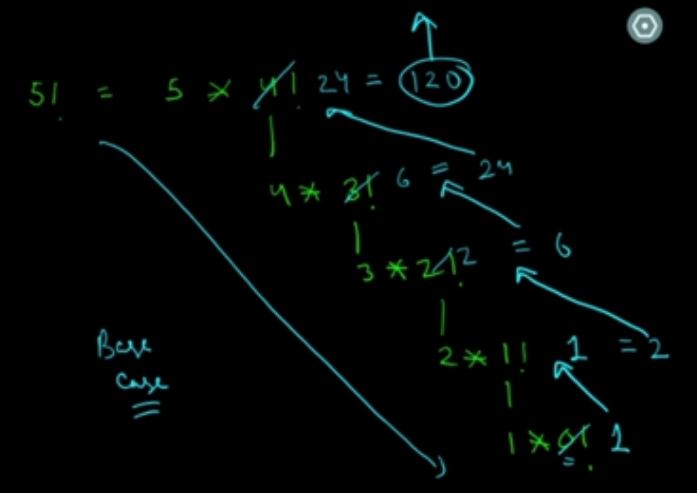 5! = 5 * 4! 24 = 120
4 * 3! 6 = 24
3 * 2! 2 = 6
2 * 1! 1 = 2
Base
Case
1 * 0! 1